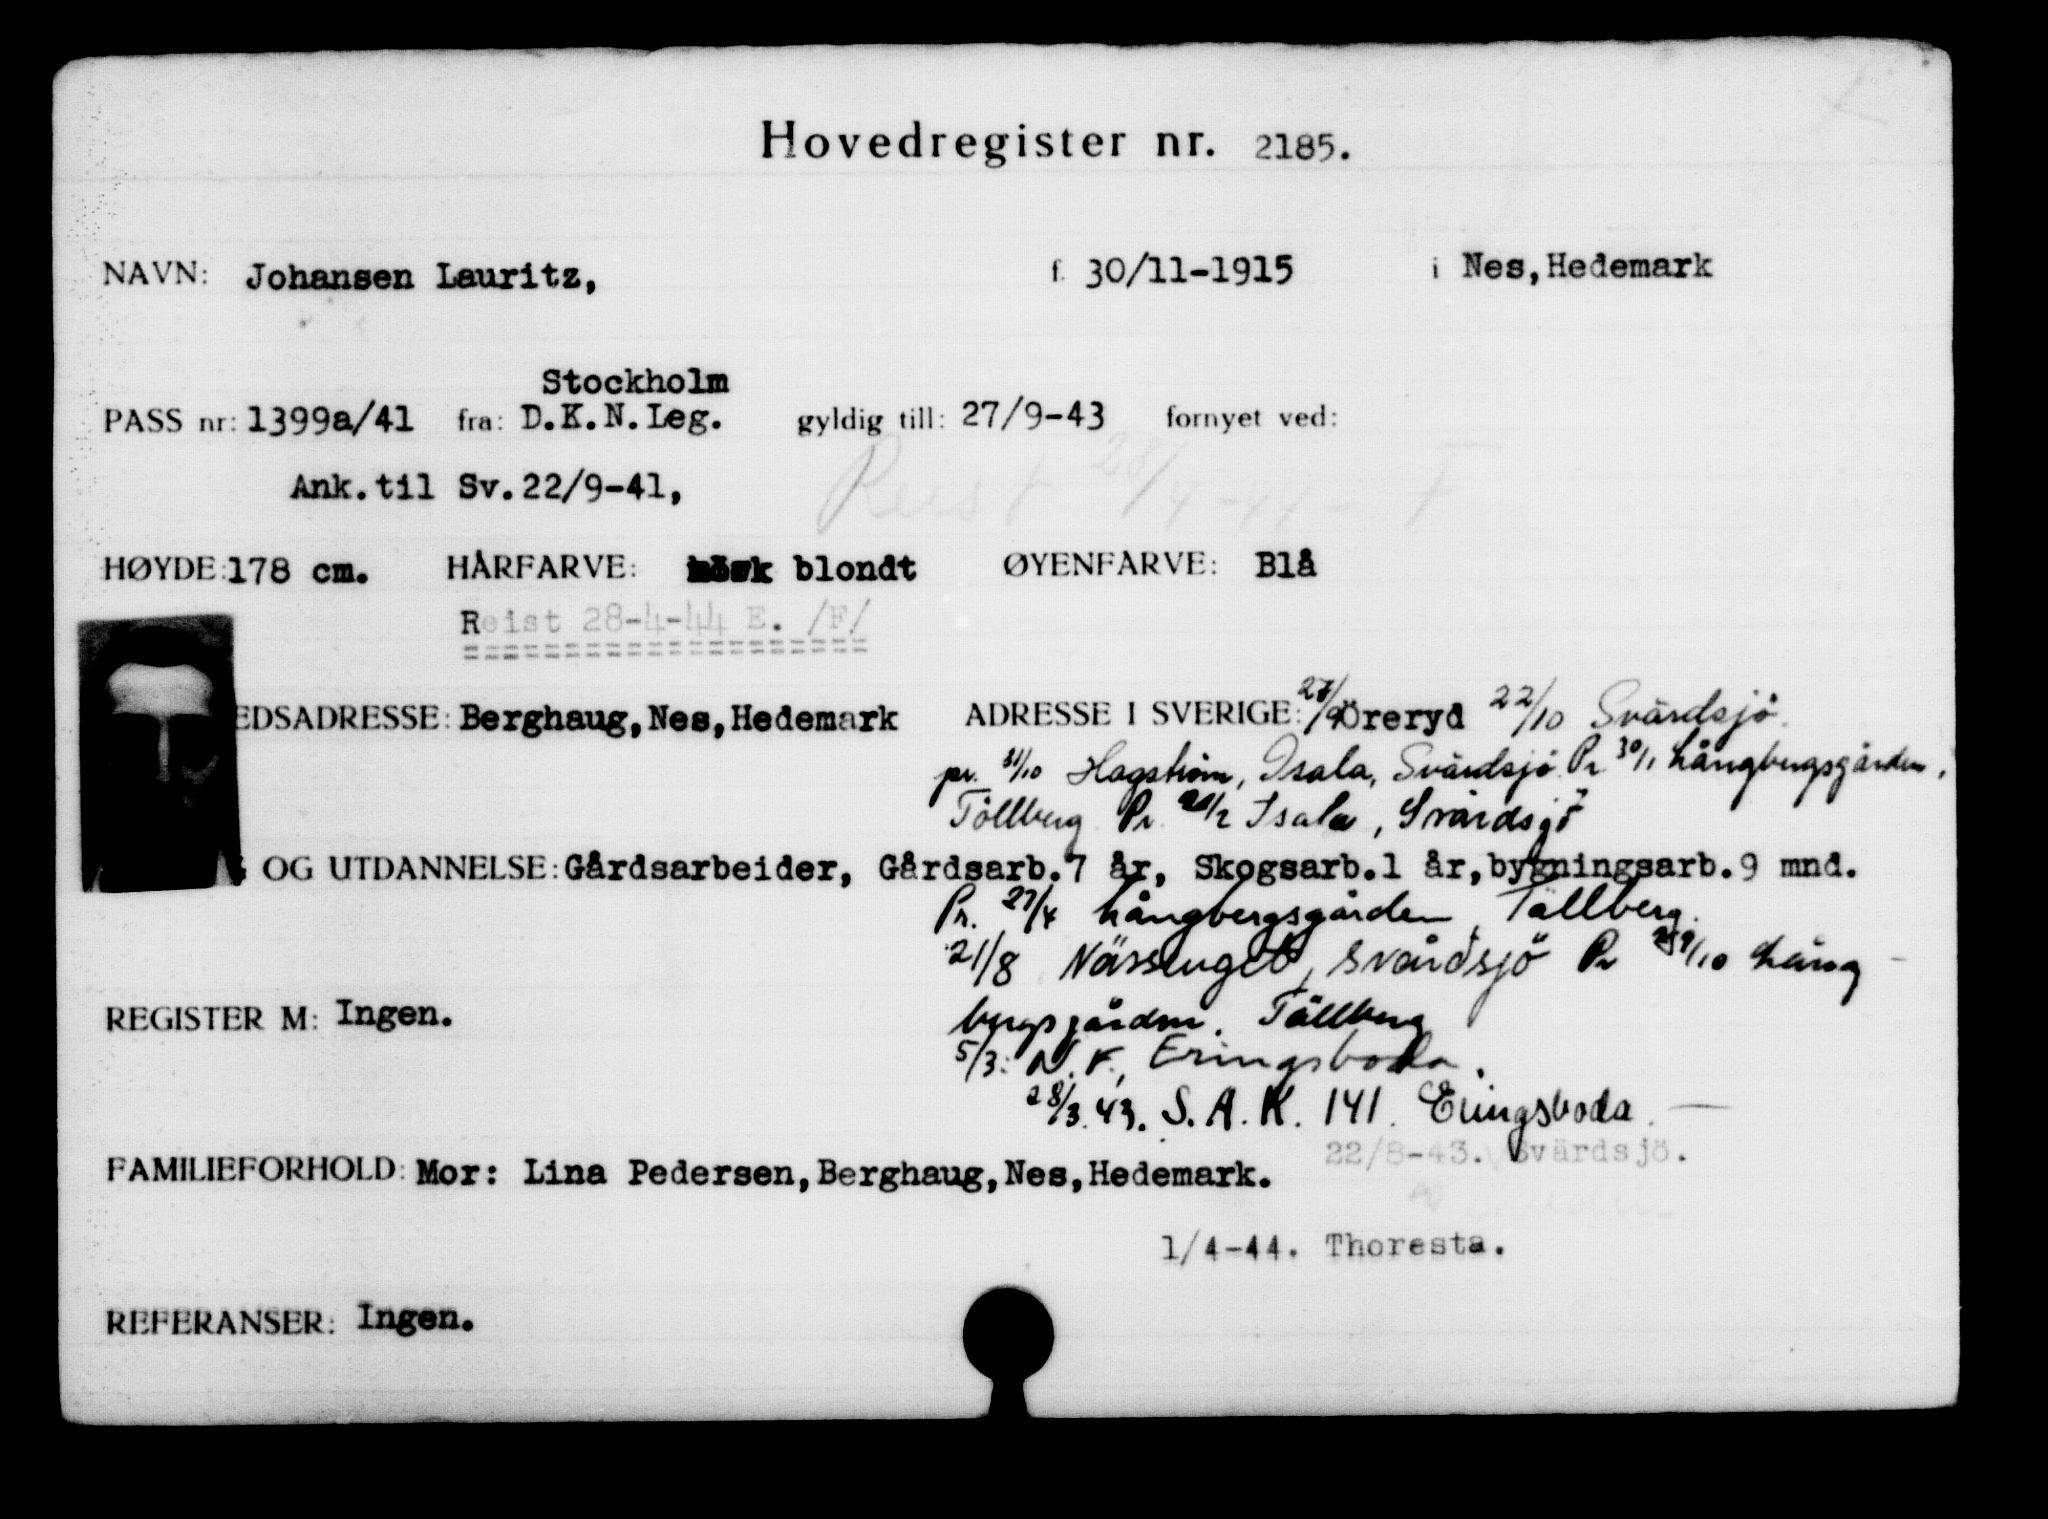 Hovedregister nr. 2185.
NAVN: Johansen Lauritz, f. 30/11-1915 i Nes,Hedemark
Stockholm
PASS nr: 1399a/41 fra: D.K.N.Leg. gyldig till: 27/9-43 fornyet ved:
Reist 28/4-44- F
Ank.til Sv.22/9-41,
HØYDE: 178 cm. HÅRFARVE: blondt ØYENFARVE: Blå
Reist 28-4-44 E. /F/
EDSADRESSE: Berghaug,Nes,Hedemark ADRESSE I SVERIGE: 27/9 Öreryd 22/10 Svärdsjö
pr. 31/10 Hagström, Isala, Svärdsjö. Pr 30/1 Långbergsgården,
Tällberg Pr. /2 Isala, Svärdsjö
G OG UTDANNELSE: Gårdsarbeider, Gårdsarb.7 år, Skogsarb.1 år,bygningsarb.9 mnd.
Pr. 27/4 Långbergsgården, Tällberg.
21/8 Svärdsjö Pr /10 Lång-
bergsgården. Tällberg
REGISTER M: Ingen.
5/3: N.F., Eringsboda.
28/3.43. S.A.K. 141. Eringsboda.
22/8-43. Svärdsjö.
FAMILIEFORHOLD: Mor: Lina Pedersen,Berghaug,Nes,Hedemark.
1/4-44. Thoresta.
REFERANSER: Ingen.